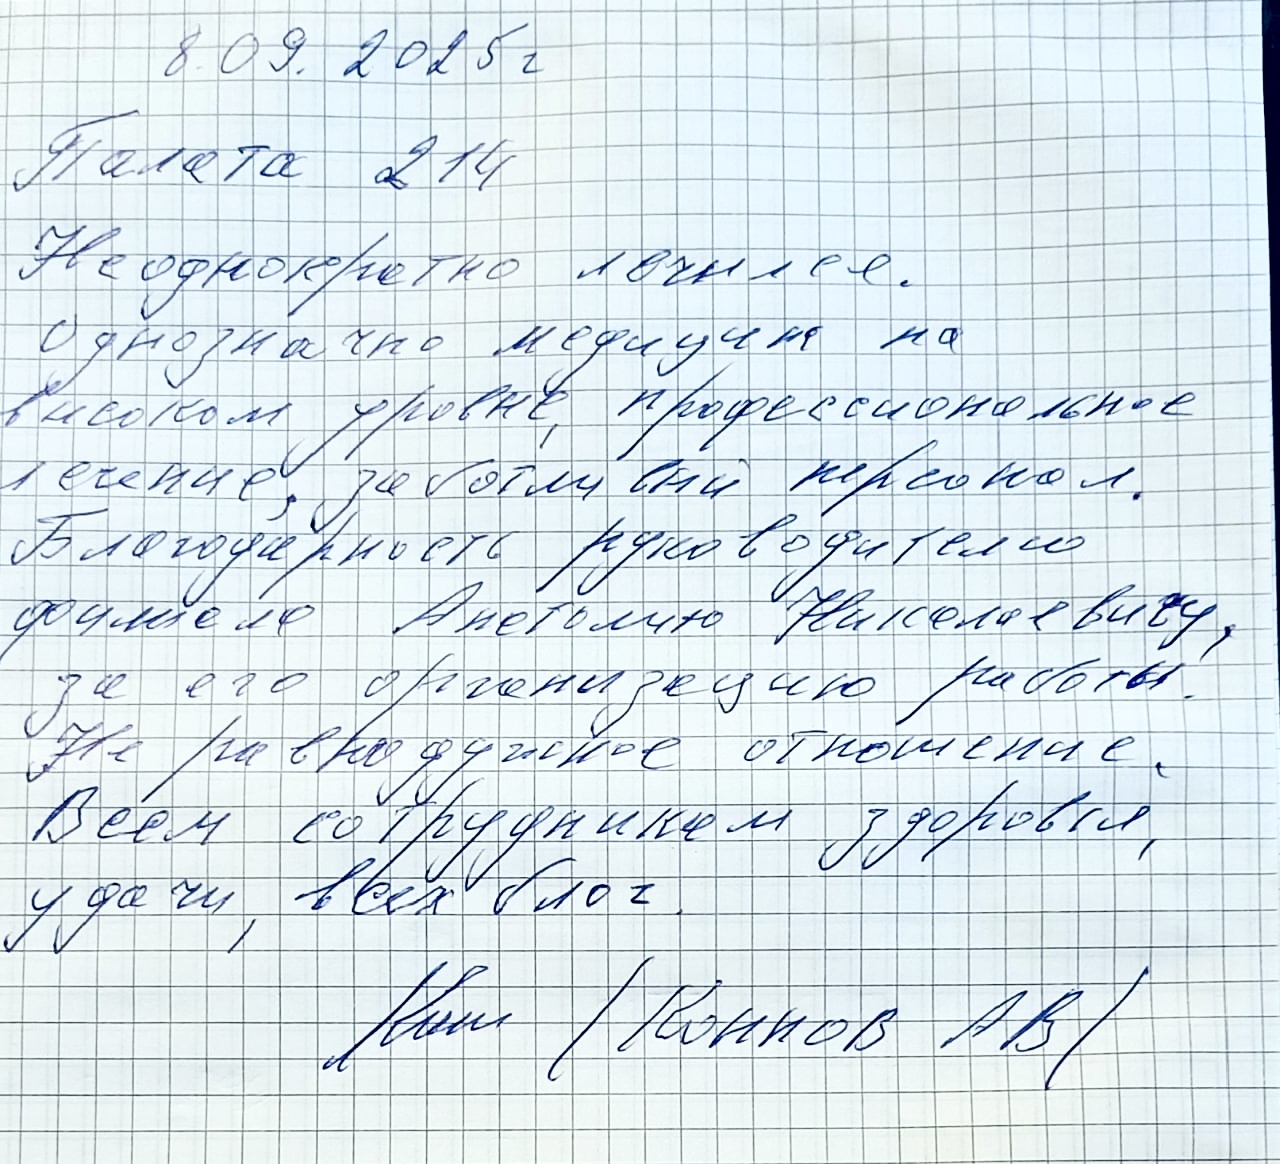 8.09.2025г
Палата 214
Неоднократно лечился.
Однозначно медицина на
высоком уровне, профессиональное
лечение, заботливый персонал.
Благодарность руководителю
филиала Анатолию Николаевичу,
за его организацию работы.
Не равнодушное отношение.
Всем сотрудникам здоровья,
удачи, всех благ.
(Коннов АВ)